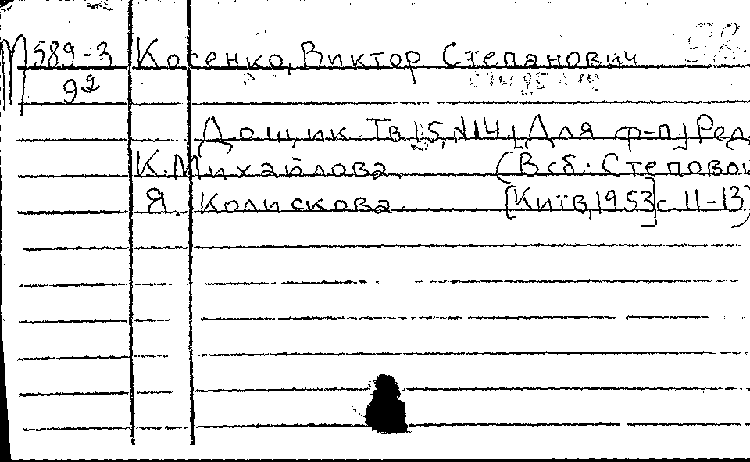 М 589-3 Косенко, Виктор Степанович 92
92
Дощик. Тв. 15, №14, Для ф-п) Ред.
К. Михайлова. (В сб.: Степовой
Я. Колискова. [Київ, 1953] с. 11-13)